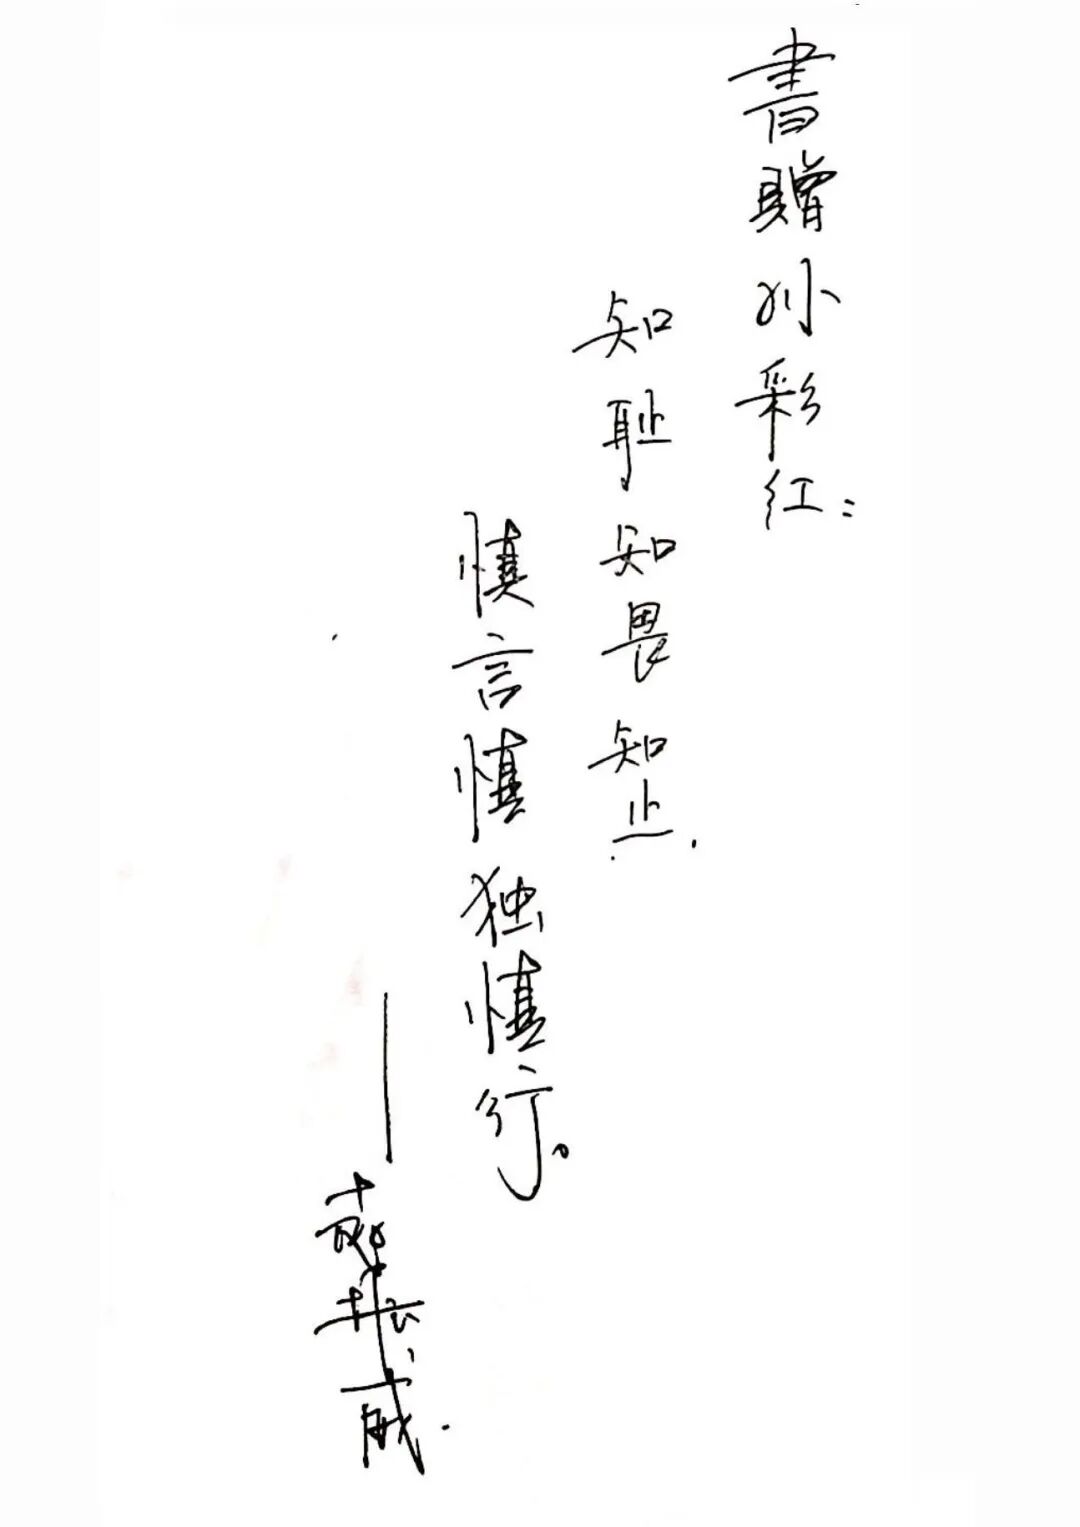 書贈孙彩红：
知耻知畏知止.
慎言慎独慎行。